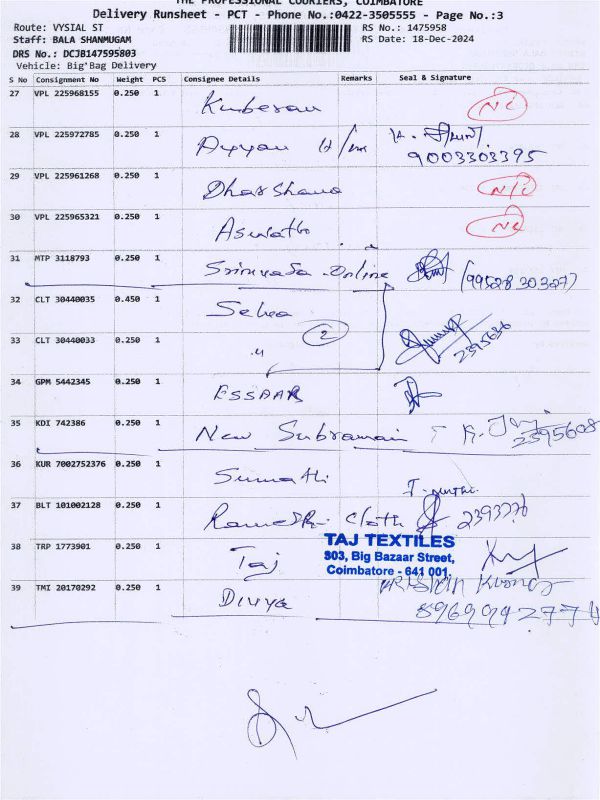 THE PROFESSIONAL COURIERS, COIMBATORE
Delivery Runsheet - PCT - Phone No.:0422-3505555 - Page No.:3
Route: VYSIAL ST
RS No.: 1475958
Staff: BALA SHANMUGAM
RS Date: 18-Dec-2024
DRS No.: DCJB147595803
Vehicle: Big'Bag Delivery
S No Consignment No Weight PCS Consignee Details Remarks Seal & Signature
27 VPL 225968155 0.250 1 Kuberan NC
28 VPL 225972785 0.250 1 Ayyan
9003303395
29 VPL 225961268 0.250 1 Dharshana N/C
30 VPL 225965321 0.250 1 Aswath NC
31 MTP 3118793 0.250 1 Srinivasa Online (9952830327)
32 CLT 30440035 0.450 1 Selva
2
33 CLT 30440033 0.250 1 〃 2395636
34 GPM 5442345 0.250 1 ESSAAR
35 KDI 742386 0.250 1 New Subramani 2395608
36 KUR 7002752376 0.250 1 Sumathi
37 BLT 101002128 0.250 1 Ramesh Cloth 2393776
38 TRP 1773901 0.250 1 Taj
TAJ TEXTILES
303, Big Bazaar Street,
Coimbatore - 641 001
39 TMI 20170292 0.250 1 Divya